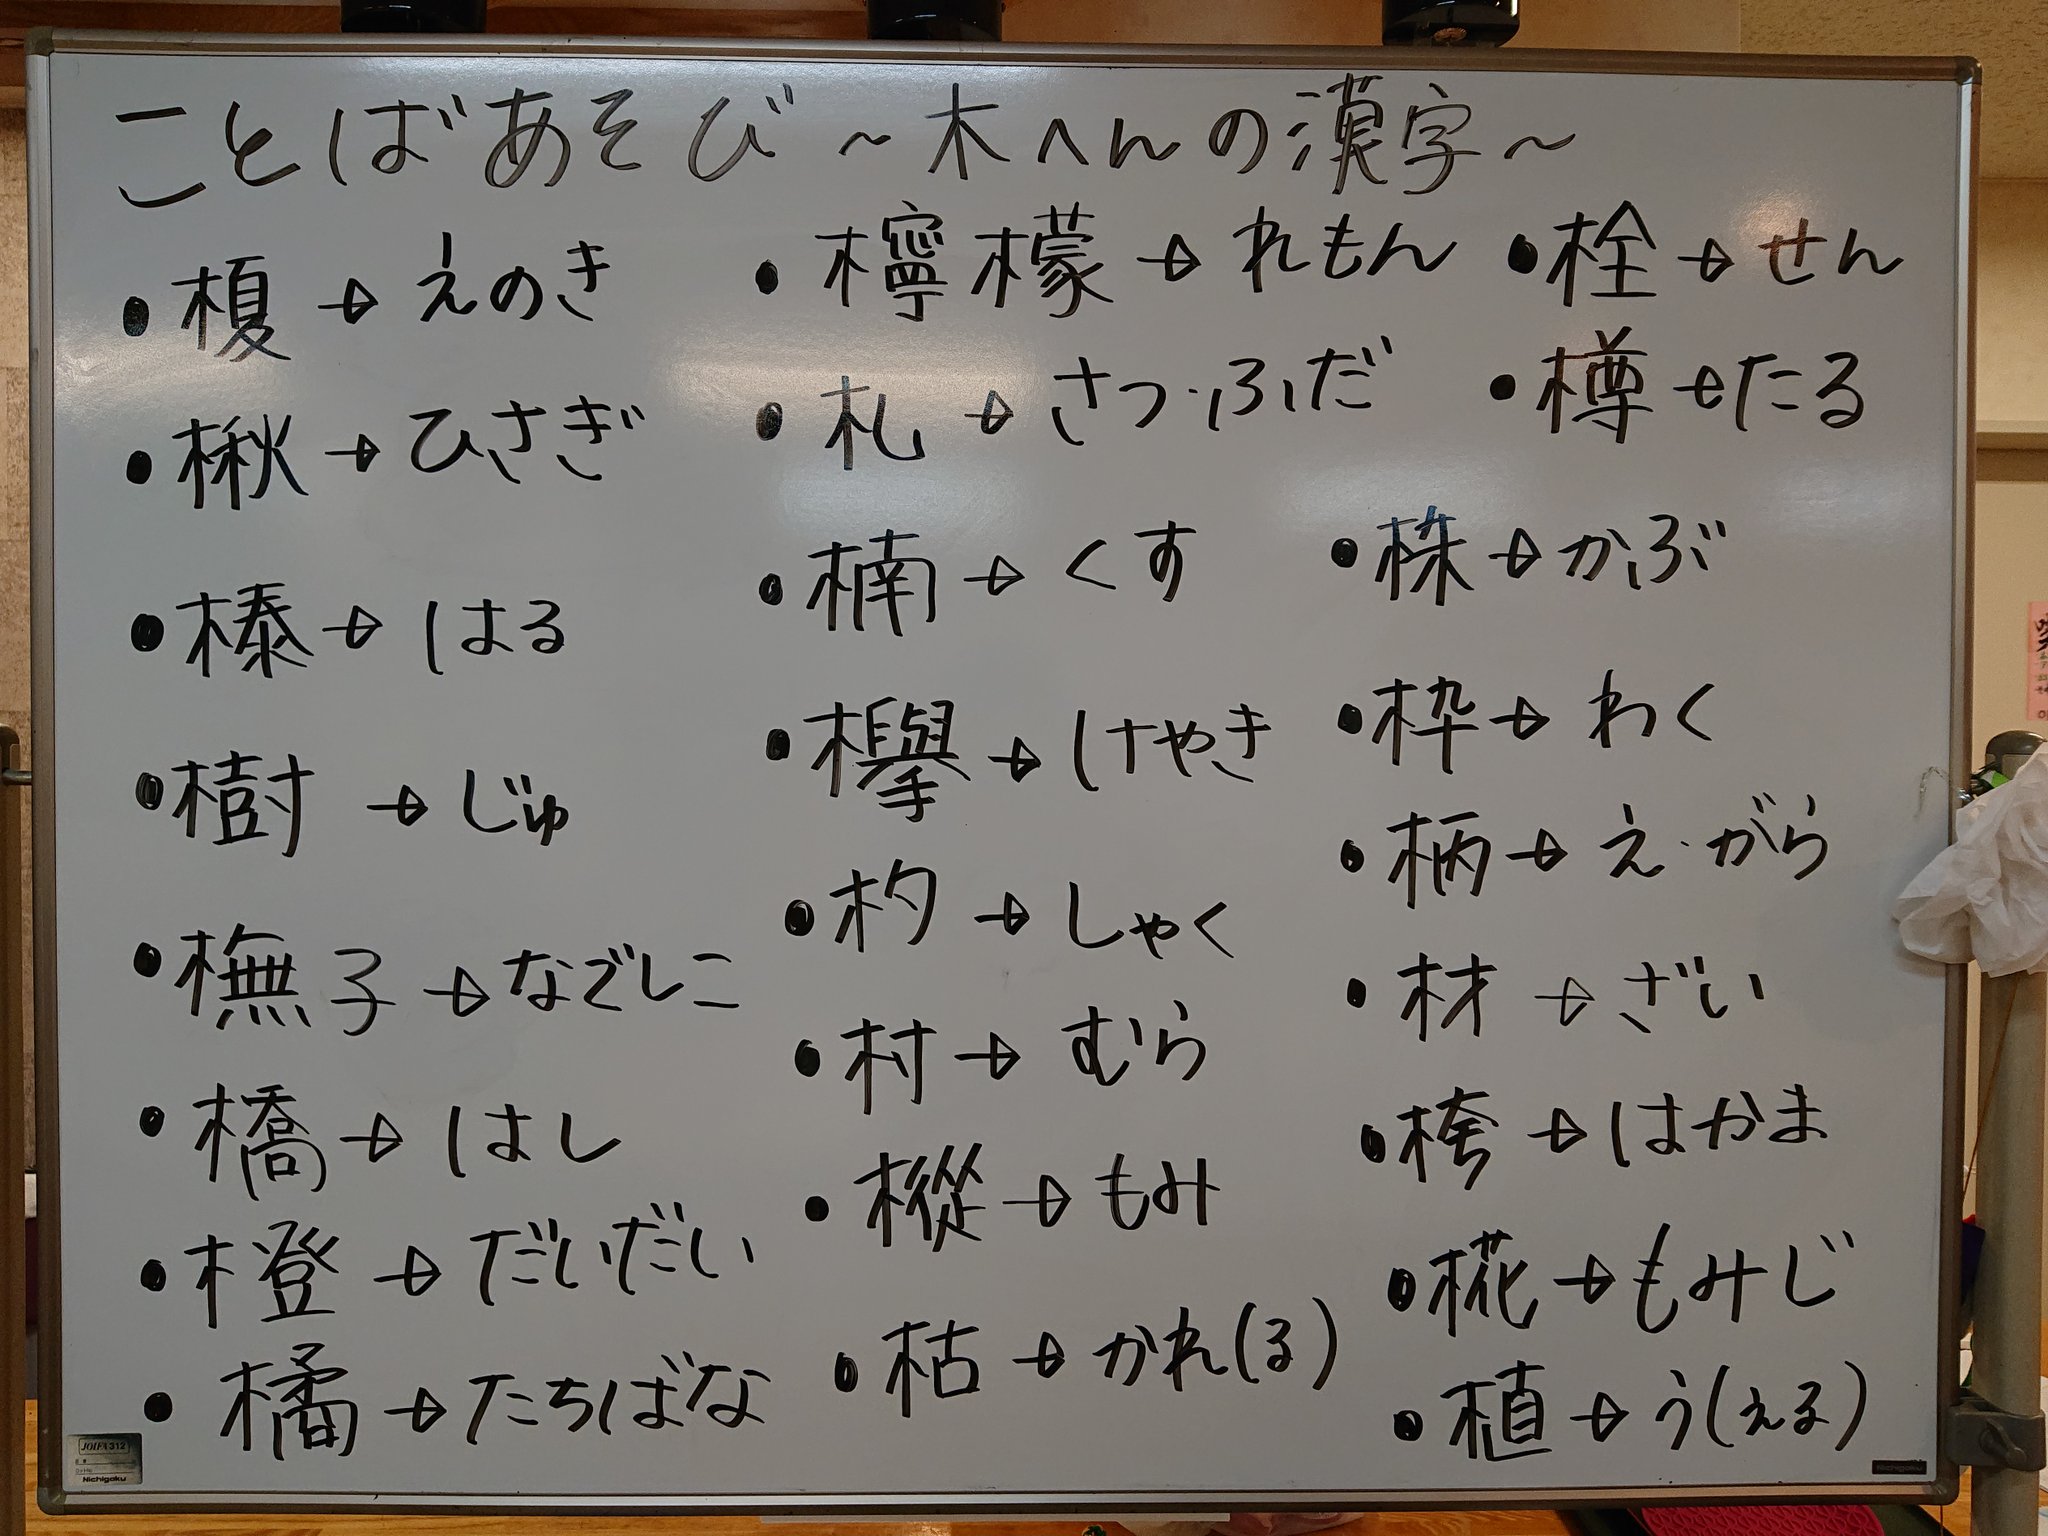 ことばあそび〜木へんの漢字〜
●榎→えのき
●楸→ひさぎ
●榛→はる
●樹→じゅ
●橅子→なでしこ
●橋→はし
●橙→だいだい
●橘→たちばな
●檸檬→れもん
●札→さつ・ふだ
●楠→くす
●欅→けやき
●杓→しゃく
●村→むら
●樅→もみ
●枯→かれ(る)
●栓→せん
●樽→たる
●株→かぶ
●枠→わく
●柄→え・がら
●材→ざい
●桍→はかま
●椛→もみじ
●植→う(える)
JOIFA 312
Nichigaku
Nichigaku